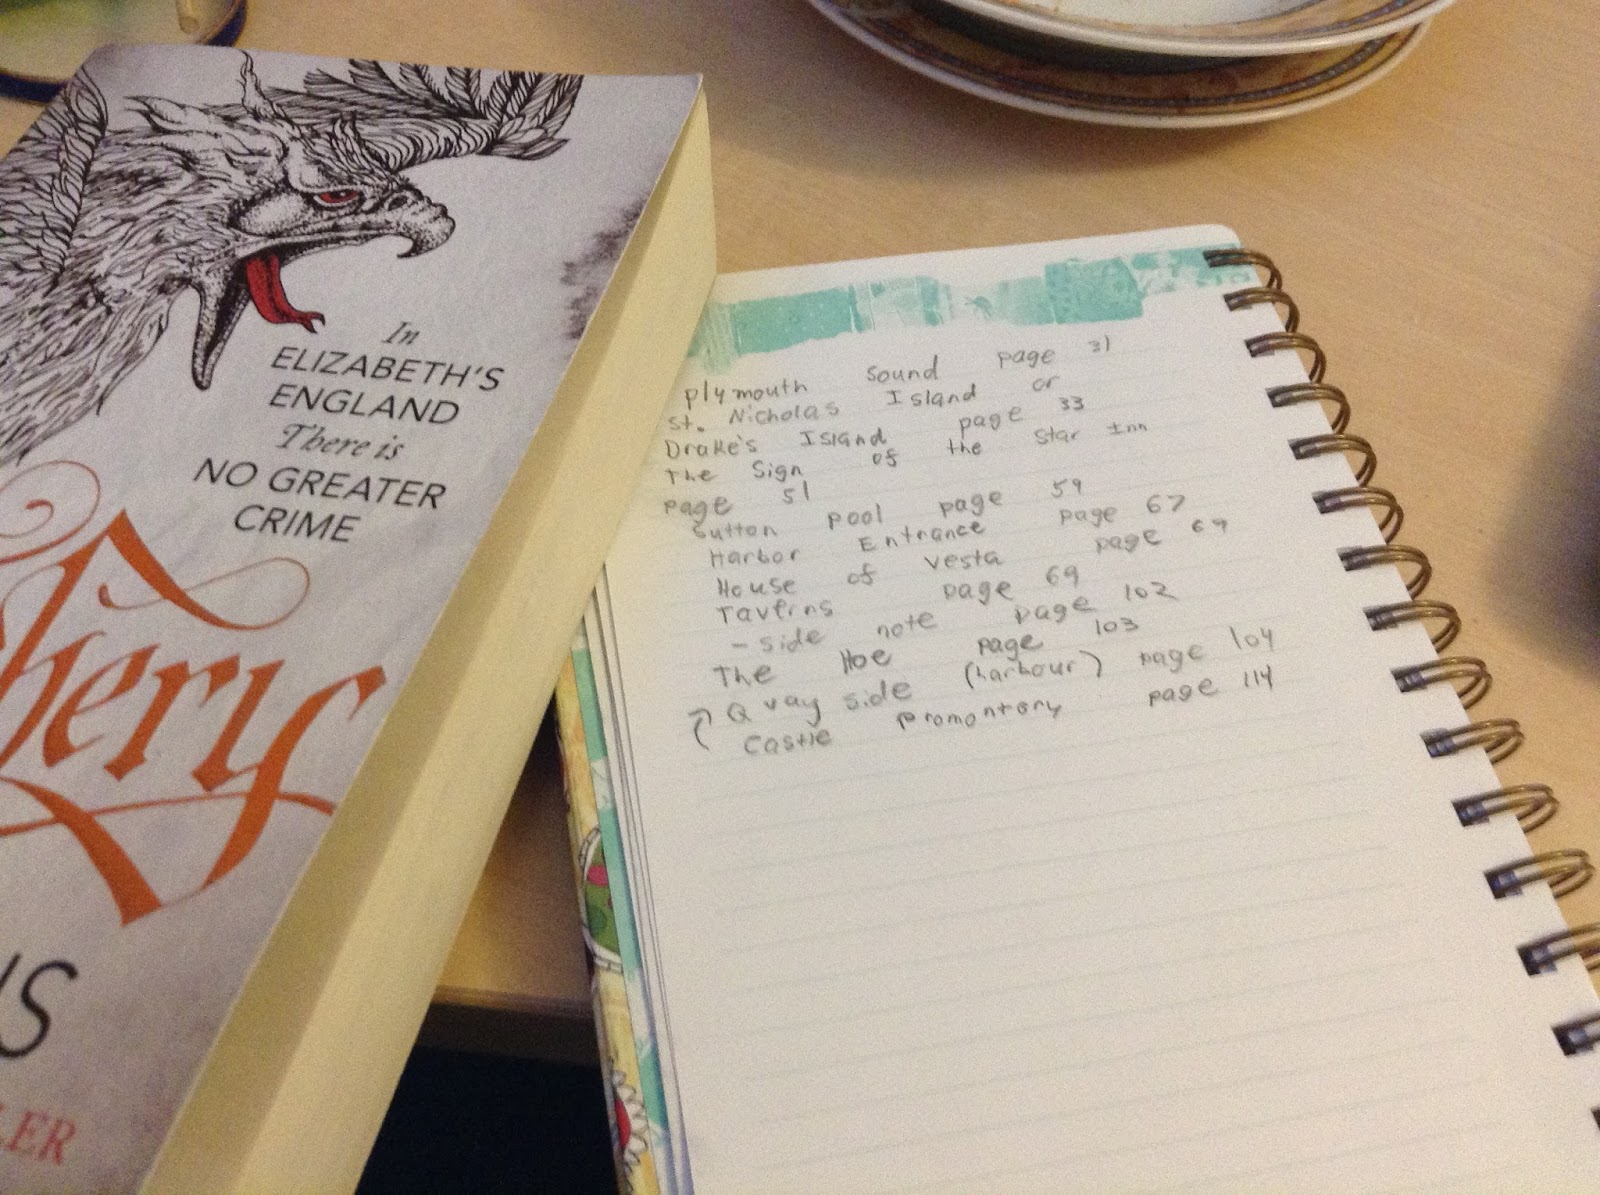 In
ELIZABETH'S
ENGLAND
There is
NO GREATER
CRIME
chery
NS
LER
Plymouth Sound page 31
St. Nicholas Island or
Drake's Island page 33
The Sign of the Star Inn
page 51
Sutton pool page 59
Harbor Entrance page 67
House of Vesta page 69
Taverns page 69
- side note page 102
The Hoe page 103
Quay side (harbour) page 104
Castle promontory page 114